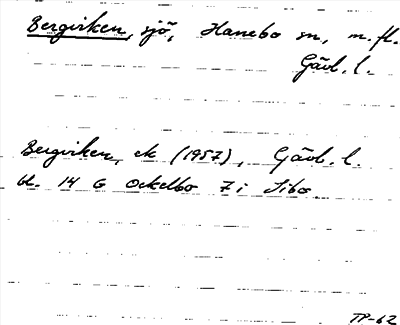 Bergviken, sjö, Hanebo sn, m.fl.
Gävl. l.
Bergviken, ek (1957), Gävl. l.
bl. 14 G Ockelbo 7 i Sibo
TP-62